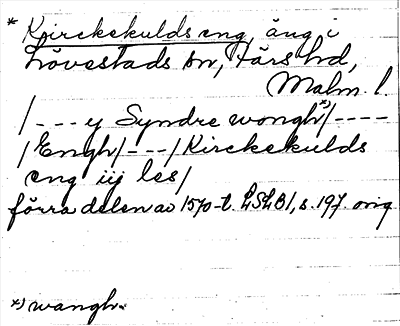 * Kjrckekulds eng, äng i
Lövestads sn, Färs hd,
Malm. l.
/---y Syndre wongh*)/----
/Engh/---/Kirckekulds
eng iij les/
förra delen av 1570-t. LSLB1, s. 197. orig
*) wangh.